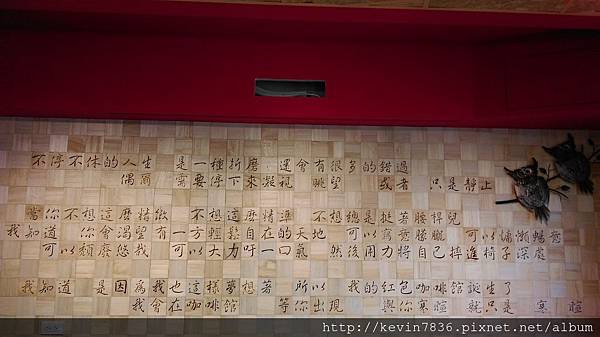 不停不休的人生 是一種折磨 還會有很多的錯過
偶爾 需要停下來凝視 眺望 或者 只是靜止
當你不想這麼精做 不想這麼精準 不想總是挺著腰桿兒
我知道 你會渴望有一方輕鬆自在的天地 可以寫意朦朧 可以慵懶暢意
可以頹廢悠哉 可以大力吁一口氣 然後用力將自己摔進椅子深處
我知道 是因為我也這樣夢想著 所以 我的紅包咖啡館誕生了
我會在咖啡館 等你出現 與你寒暄 就只是 寒暄
http://kevin7836.pixnet.net/album